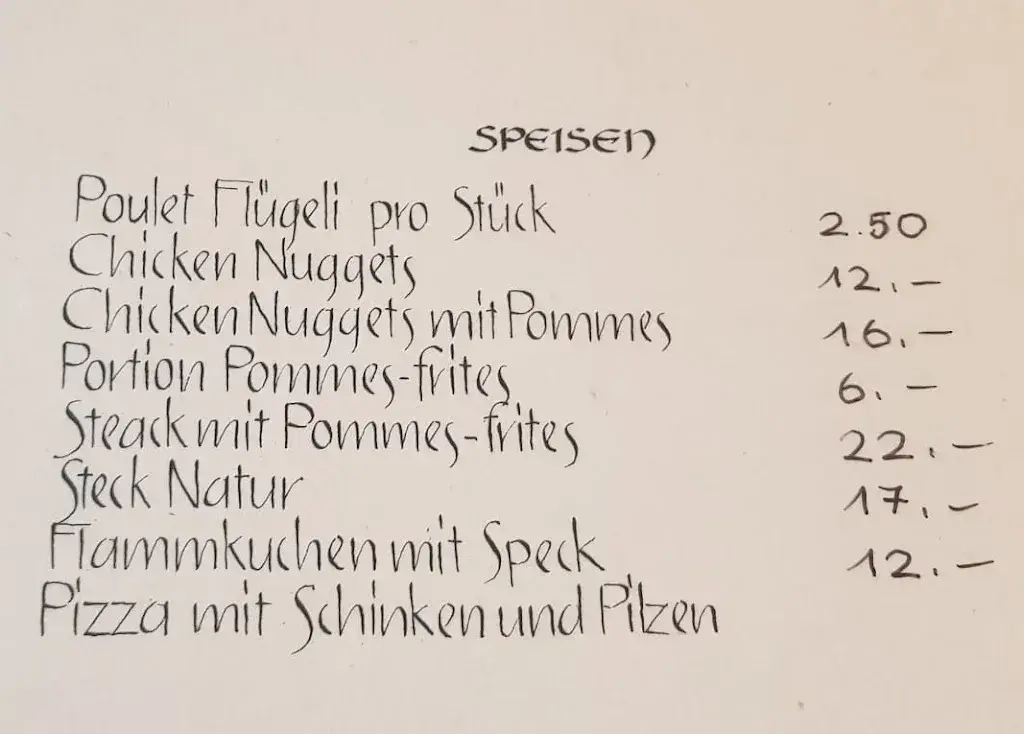 SPEISEN
Poulet Flügeli pro Stück 2.50
Chicken Nuggets 12.–
Chicken Nuggets mit Pommes 16.–
Portion Pommes-frites 6.–
Steack mit Pommes-frites 22.–
Steck Natur 17.–
Flammkuchen mit Speck 12.–
Pizza mit Schinken und Pilzen